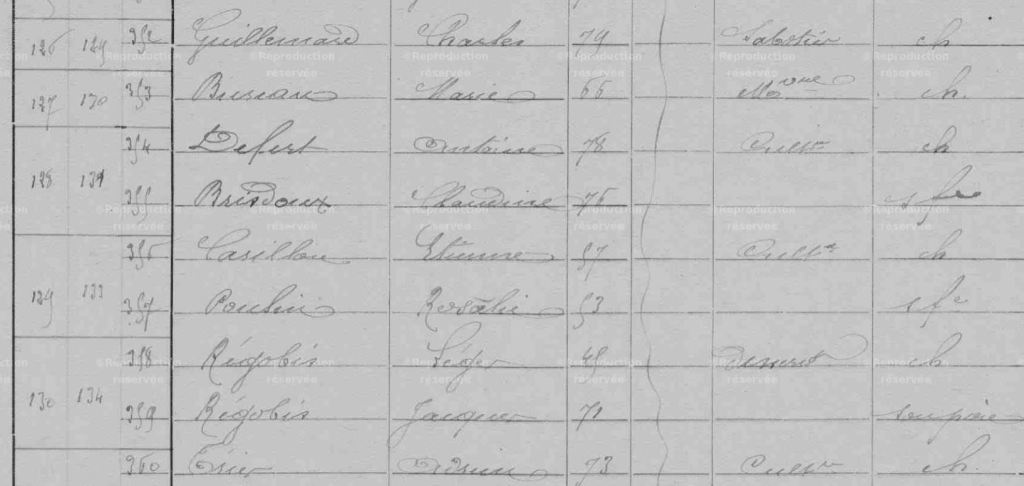 126 129 352 Guillemard Charles 79 Sabotier ch
127 130 353 Buseau Marie 66 ch.
128 131 354 Defert Antoine 78 Cultr ch
355 Brisdoux Claudine 75 s fe
129 133 356 Casillon Etienne 57 Cultr ch
357 Poulin Rosalie 53 s fe
130 134 358 Régobis Léger 45 ch
359 Régobis Jacques 71 son père
360 73 Cultr ch
©Reproduction réservée